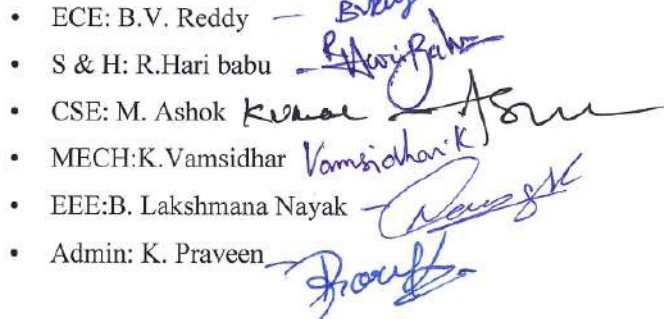 • ECE: B.V. Reddy –
• S & H: R.Hari babu – R Hari Babu
• CSE: M. Ashok Kumar –
• MECH:K.Vamsidhar Vamsidhar.K
• EEE:B. Lakshmana Nayak –
• Admin: K. Praveen –